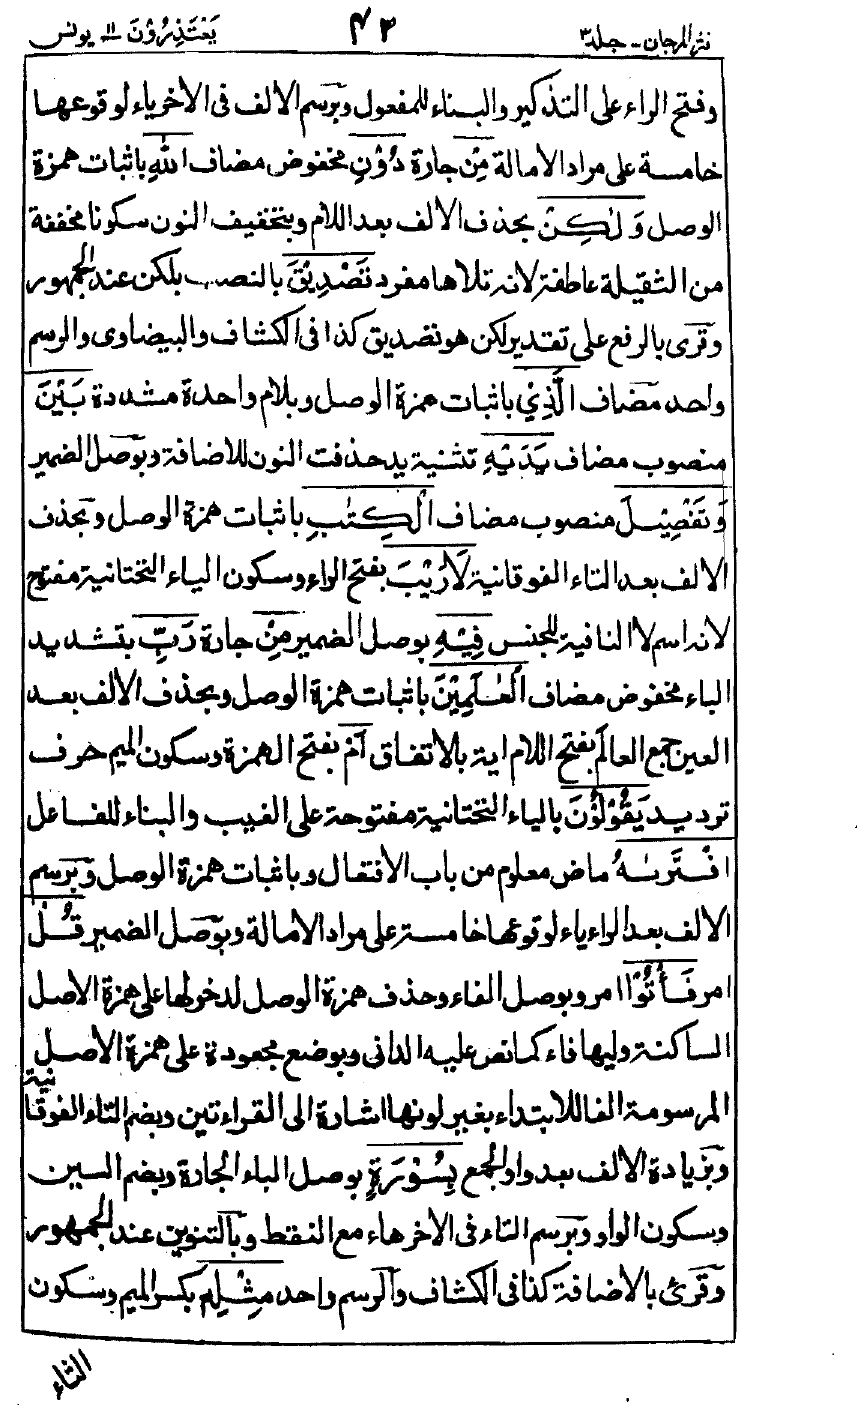 نثر المرجان - جلد ٣
٤٣
يَعْتَذِرُوْنَ ١١ يونس
وفتح الراء على التذكير والبناء للمفعول وبرسم الالف فى الاخر ياء لوقوعها
خامسة على مراد الامالة مِّنْ جارة دُوْنِ مخفوض مضاف اللّٰهِ باثبات همزة
الوصل وَلٰكِنْ بحذف الالف بعد اللام وبتخفيف النون سكونا مخففة
من الثقيلة عاطفة لانه تلاها مفرد تَصْدِيْقَ بالنصب بلكن عند الجمهور
وقرى بالرفع على تقدير لكن هو تصديق كذا فى الكشاف والبيضاوى والرسم
واحد مضاف الَّذِيْ باثبات همزة الوصل وبلام واحدة مشددة بَيْنَ
منصوب مضاف يَدَيْهِ تثنية يد حذفت النون للاضافة وبوصل الضمير
وَتَفْصِيْلَ منصوب مضاف الْكِتٰبِ باثبات همزة الوصل وبحذف
الالف بعد التاء الفوقانية لَارَيْبَ بفتح الراء وسكون الياء التحتانية مفتوح
لانه اسم لا النافية للجنس فِيْهِ بوصل الضمير مِنْ جارة رَّبِّ بتشديد
الباء مخفوض مضاف الْعٰلَمِيْنَ باثبات همزة الوصل وبحذف الالف بعد
العين جمع العالَم بفتح اللام اية بالاتفاق اَمْ بفتح الهمزة وسكون الميم حرف
ترديد يَقُوْلُوْنَ بالياء التحتانية مفتوحة على الغيب والبناء للفاعل
افْتَرٰىهُ ماض معلوم من باب الافتعال وباثبات همزة الوصل وبرسم
الالف بعد الراء ياء لوقوعها خامسة على مراد الامالة وبوصل الضمير قُلْ
امر فَأْتُوْا امر وبوصل الفاء وحذف همزة الوصل لدخولها على همزة الاصل
الساكنة وليها فاء كما نص عليه الدانى وبوضع مجعودة على همزة الاصل
المرسومة الفا للابتداء بغير لونها اشارة الى القراءتين وبضم التاء الفوقانية
وبزيادة الالف بعد واو الجمع بِسُوْرَةٍ بوصل الباء الجارة وبضم السين
وسكون الواو وبرسم التاء فى الاخر هاء مع النقط وبالتنوين عند الجمهور
وقرئ بالاضافة كذا فى الكشاف والرسم واحد مِّثْلِهٖ بكسر الميم وسكون
الثاء